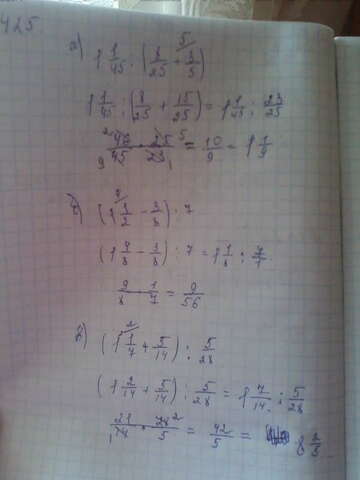 425.
а) 1 1/45 : (8/25 + 3/5)
1 1/45 : (8/25 + 15/25) = 1 1/45 : 23/25
46/45 · 25/23 = 10/9 = 1 1/9
б) (1 1/2 - 3/8) : 7
(1 4/8 - 3/8) : 7 = 1 1/8 : 7/1
9/8 · 1/7 = 9/56
в) (1 1/7 + 5/14) : 5/28
(1 2/14 + 5/14) : 5/28 = 1 7/14 : 5/28
21/14 · 28/5 = 42/5 = 8 2/5